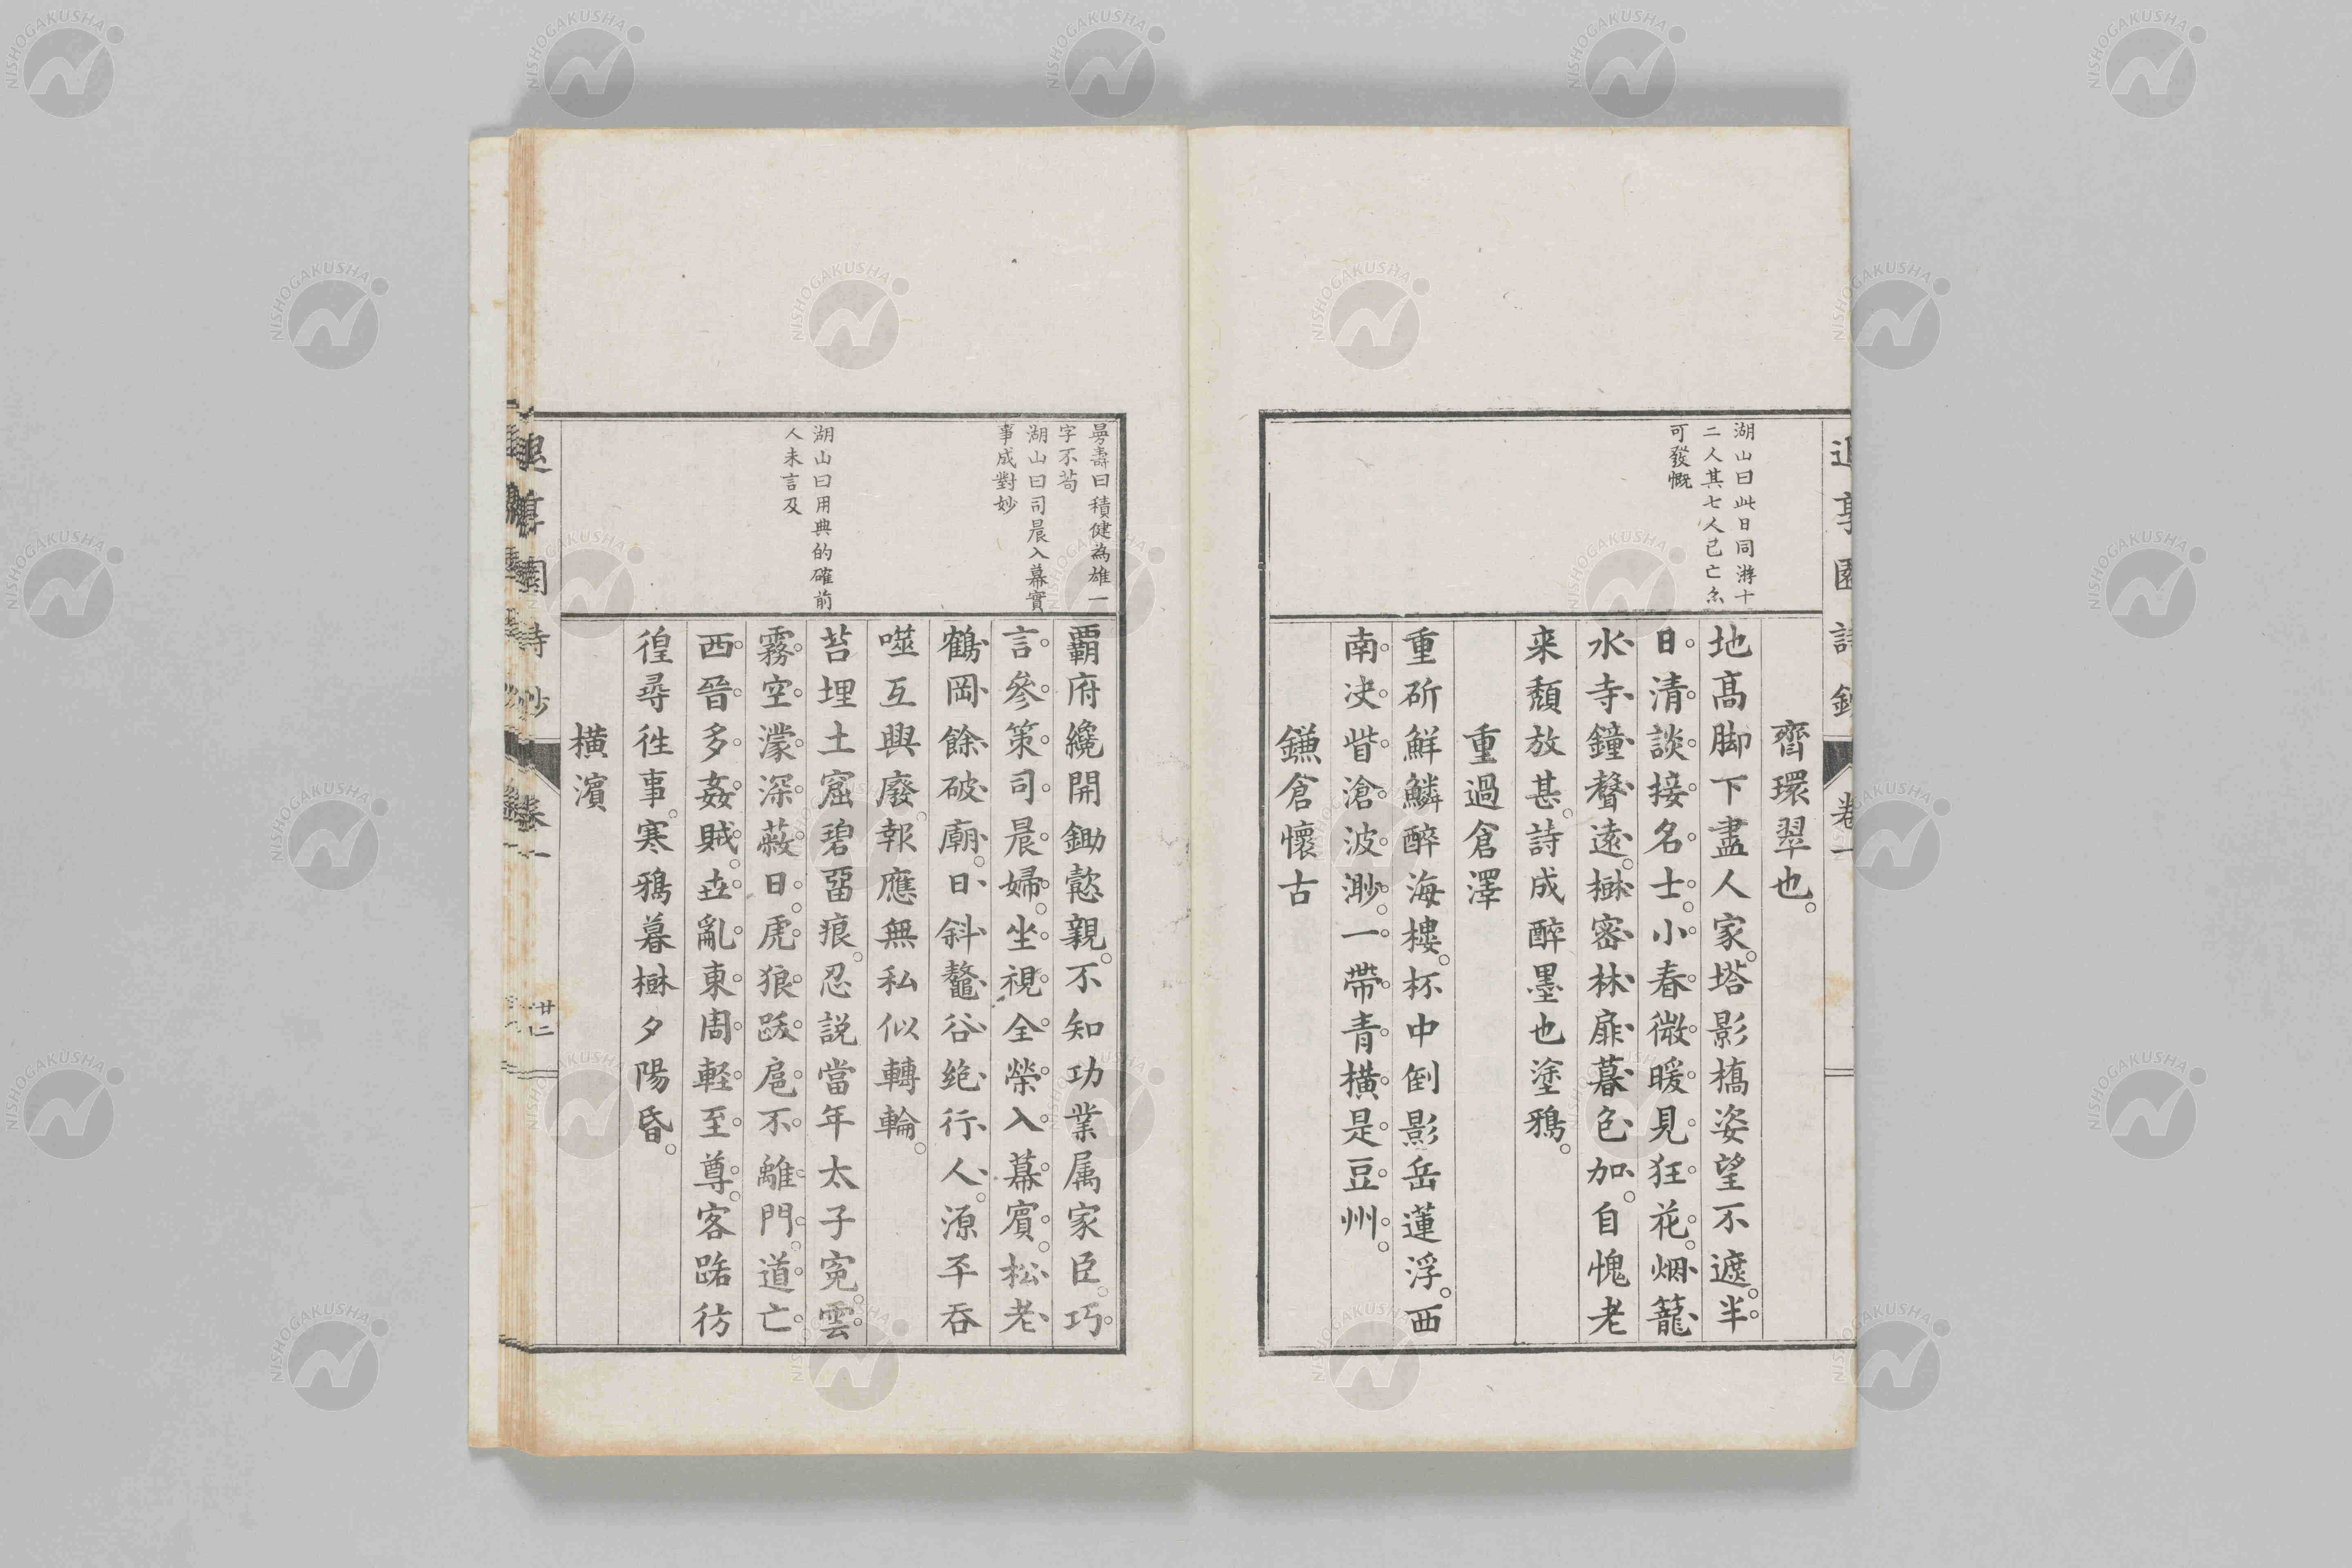 湖山曰此日同游十
二人其七人已亡尓
可發慨
齊環翠也。
地高脚下盡人家。塔影橋姿望不遮。半
日清談接名士。小春微暖見狂花。烟籠
水寺鐘聲遠。樾密林扉暮色加。自愧老
来頽放甚。詩成醉墨也塗鴉。
重過倉澤
重斫鮮鱗醉海樓。杯中倒影岳蓮浮。西
南决眥滄波渺。一帶青横是豆州。
鎌倉懷古
卷一
曩壽曰積健為雄一
字不苟
湖山曰司晨入幕實
事成對妙
湖山曰用典的確前
人未言及
覇府纔開鋤懿親。不知功業属家臣。巧
言參策司晨婦。坐視全榮入幕賓。松老
鶴岡餘破廟。日斜鼇谷絶行人。源平吞
噬互興廢。報應無私似轉輪。
苔埋土窟碧畱痕。忍説當年太子寃。雲
霧空濛深蔽日。虎狼跋扈不離門。道亡
西晉多姦賊。丗亂東周軽至尊。客路彷
徨尋徃事。寒鴉暮樾夕陽昏。
横濱
廿二